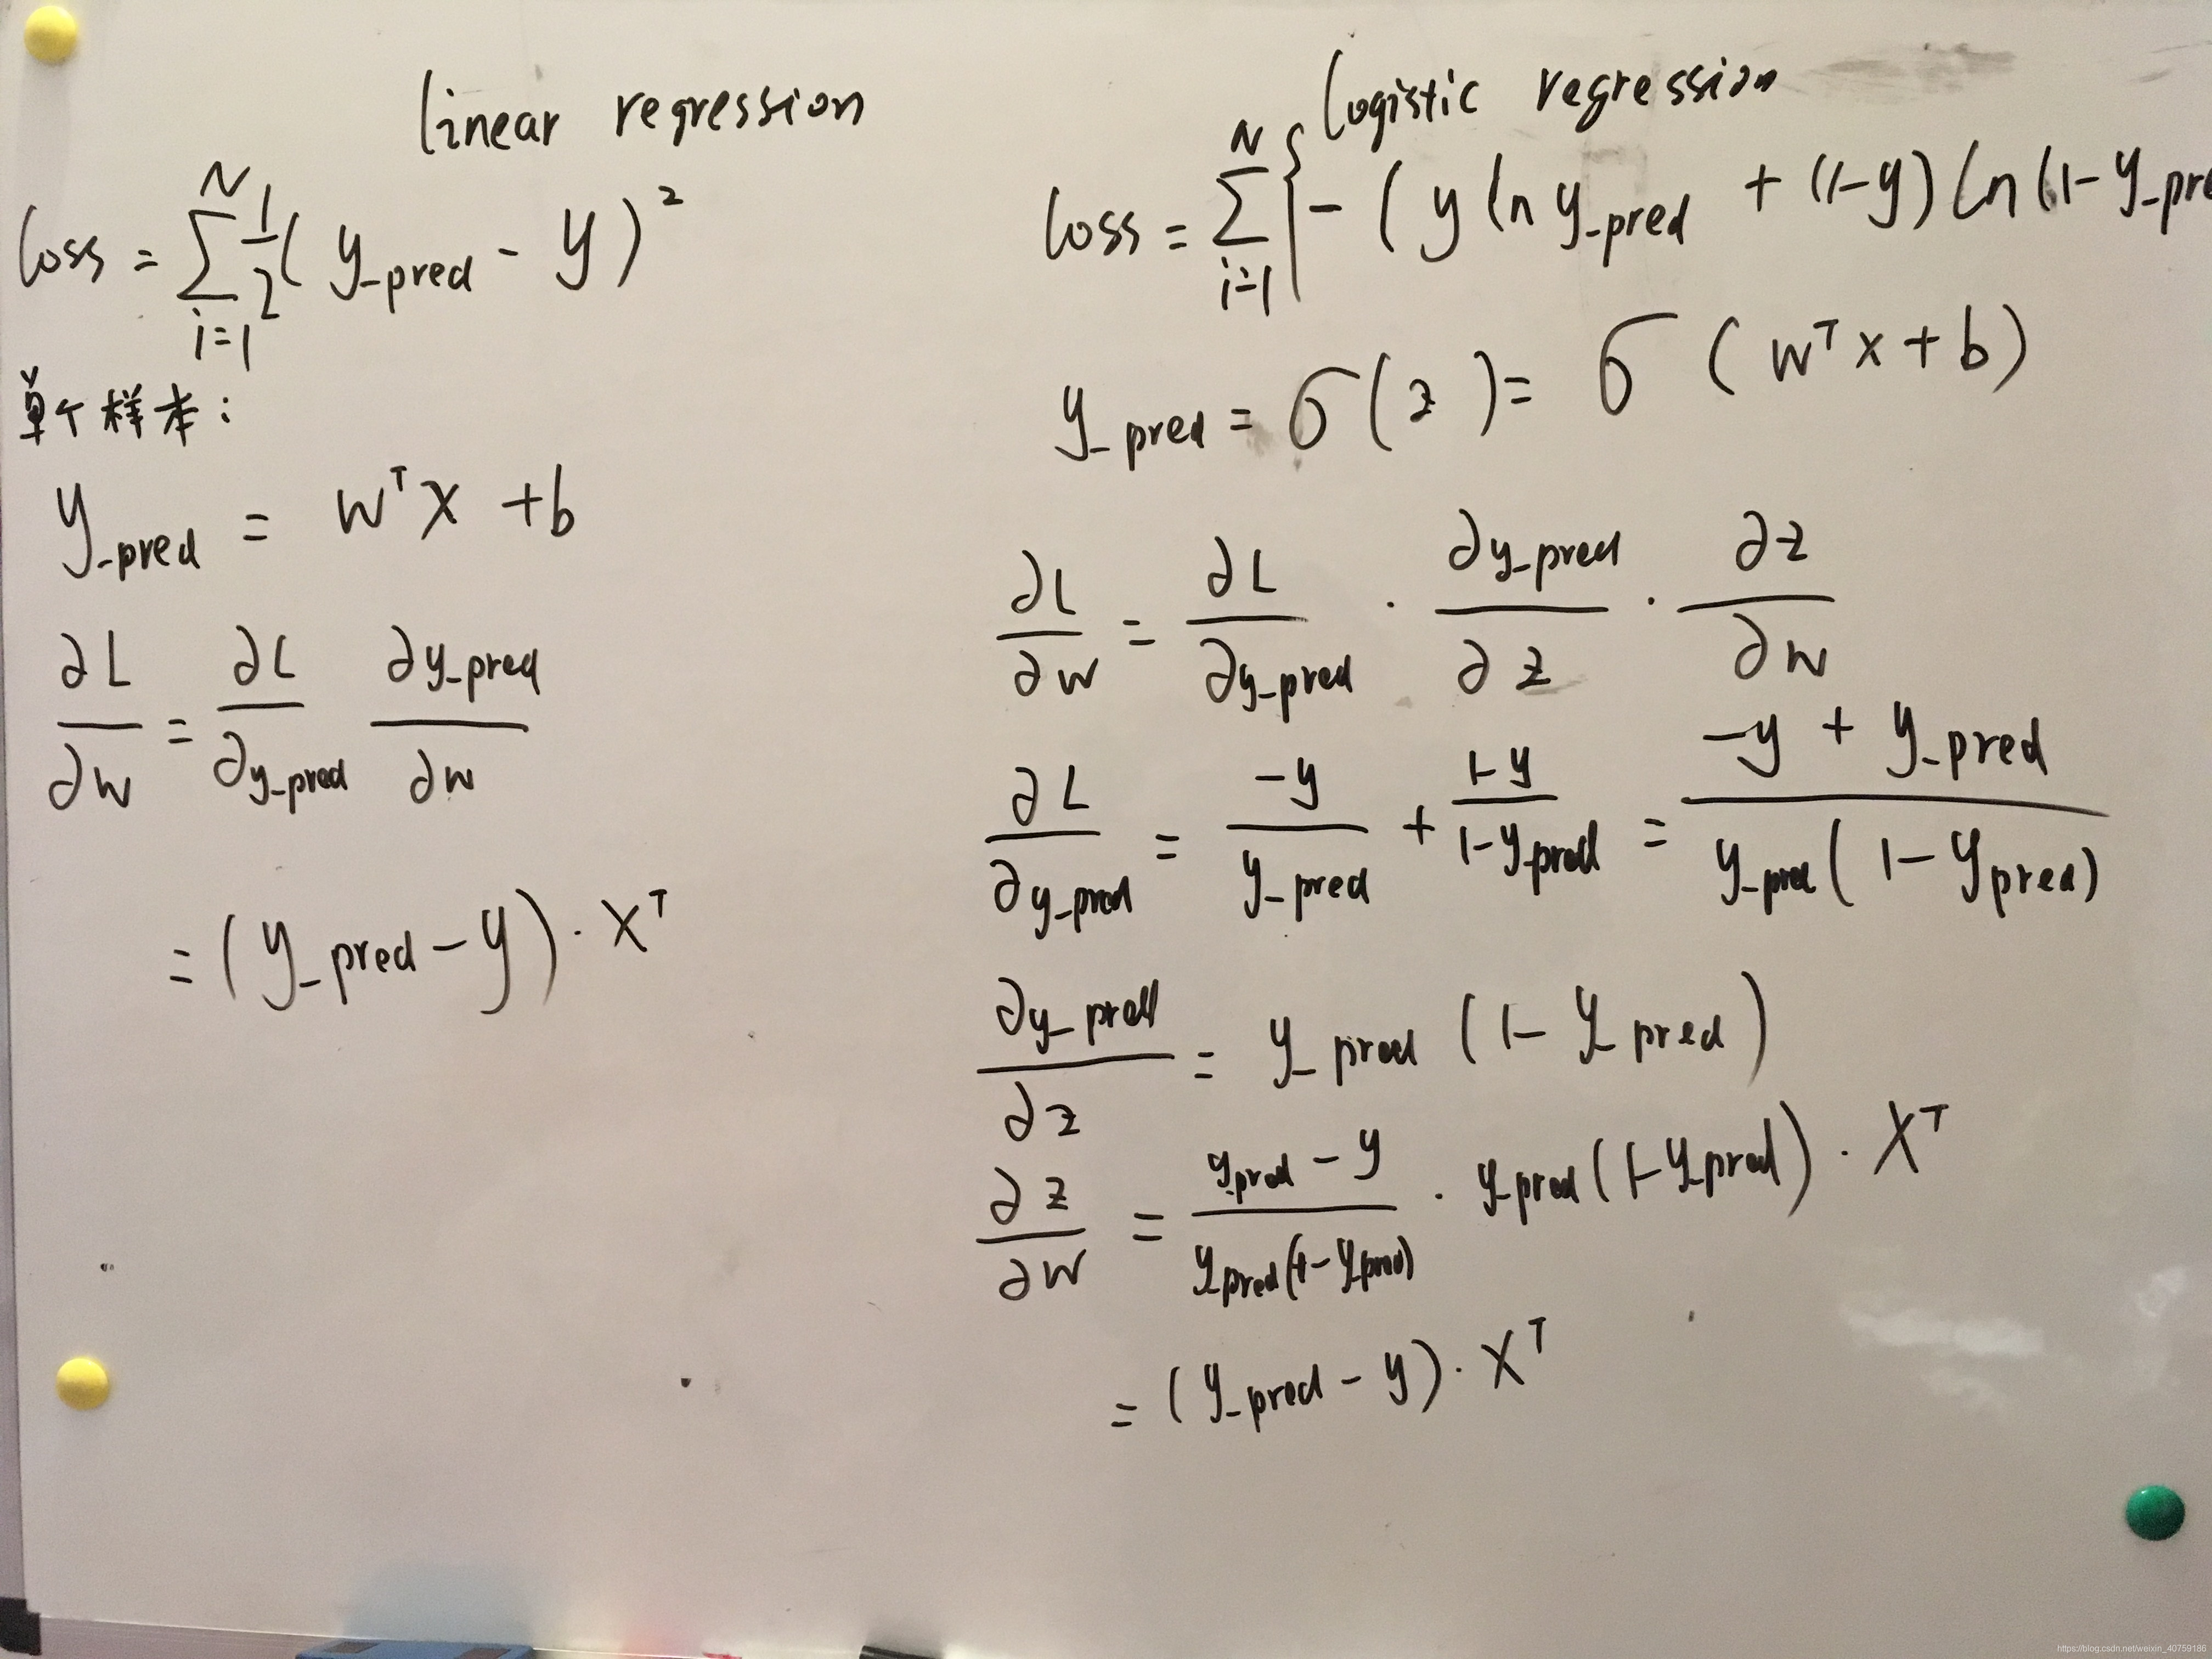 linear regression
loss = \sum_{i=1}^{N} \frac{1}{2} ( y_pred - y )^2
单个样本:
y_pred = w^T x + b
\frac{∂L}{∂w} = \frac{∂L}{∂y_pred} \frac{∂y_pred}{∂w}
= (y_pred - y) · x^T
logistic regression
loss = \sum_{i=1}^{N} { - ( y ln y_pred + (1-y) ln (1- y_pre
y_pred = σ(z) = σ ( w^T x + b )
\frac{∂L}{∂w} = \frac{∂L}{∂y_pred} · \frac{∂y_pred}{∂z} · \frac{∂z}{∂w}
\frac{∂L}{∂y_pred} = \frac{-y}{y_pred} + \frac{1-y}{1-y_pred} = \frac{-y + y_pred}{y_pred ( 1 - y_pred)}
\frac{∂y_pred}{∂z} = y_pred (1 - y_pred)
\frac{∂z}{∂w} = \frac{y_pred - y}{y_pred(1-y_pred)} · y_pred (1-y_pred) · x^T
= (y_pred - y) · x^T
https://blog.csdn.net/weixin_40759186